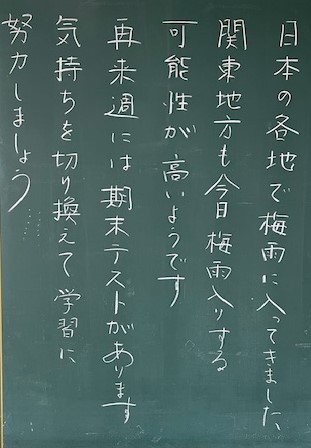 日本の各地で梅雨に入ってきました
関東地方も今日梅雨入りする
可能性が高いようです
再来週には期末テストがあります
気持ちを切り換えて学習に
努力しましょう